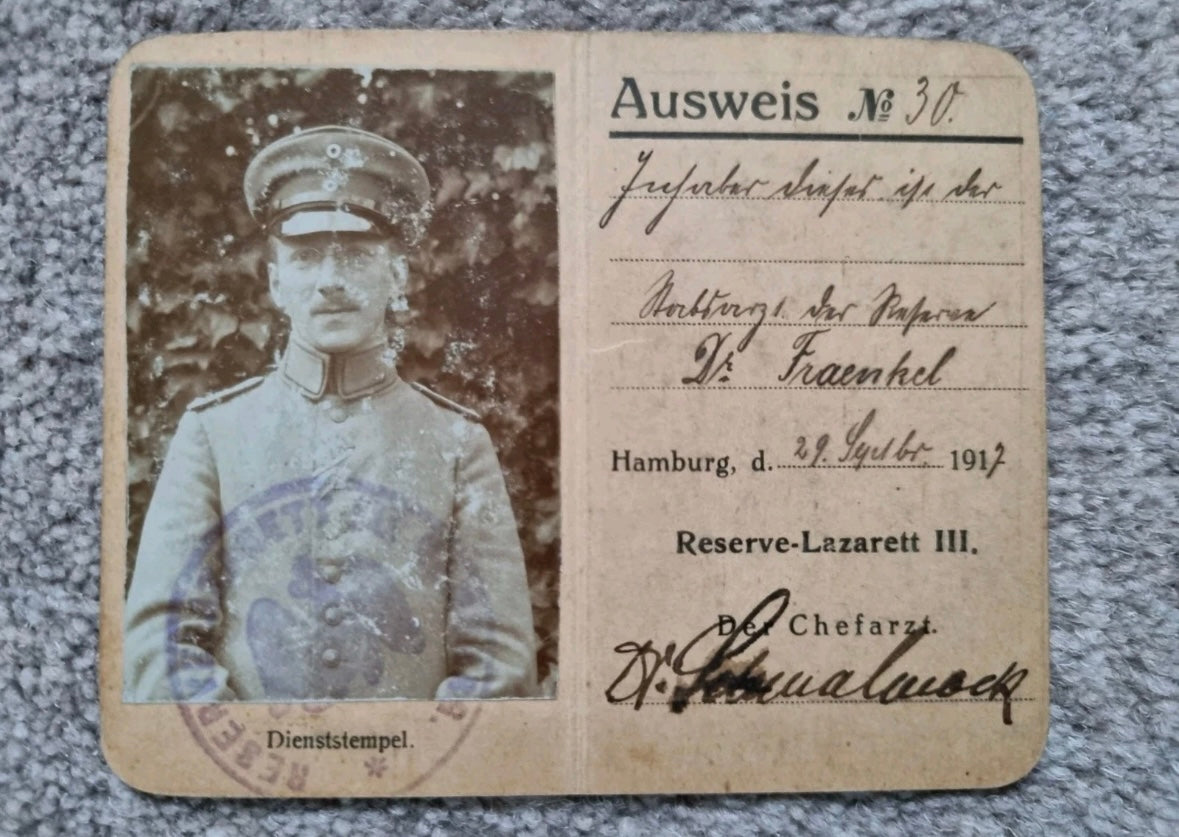 Ausweis № 30.
Inhaber dieses ist der
Stabsarzt der Reserve
Dr. Fraenkel
Hamburg, d. 29. Septbr. 1917
Reserve-Lazarett III.
Der Chefarzt.
Dr.
Dienststempel.
RESER